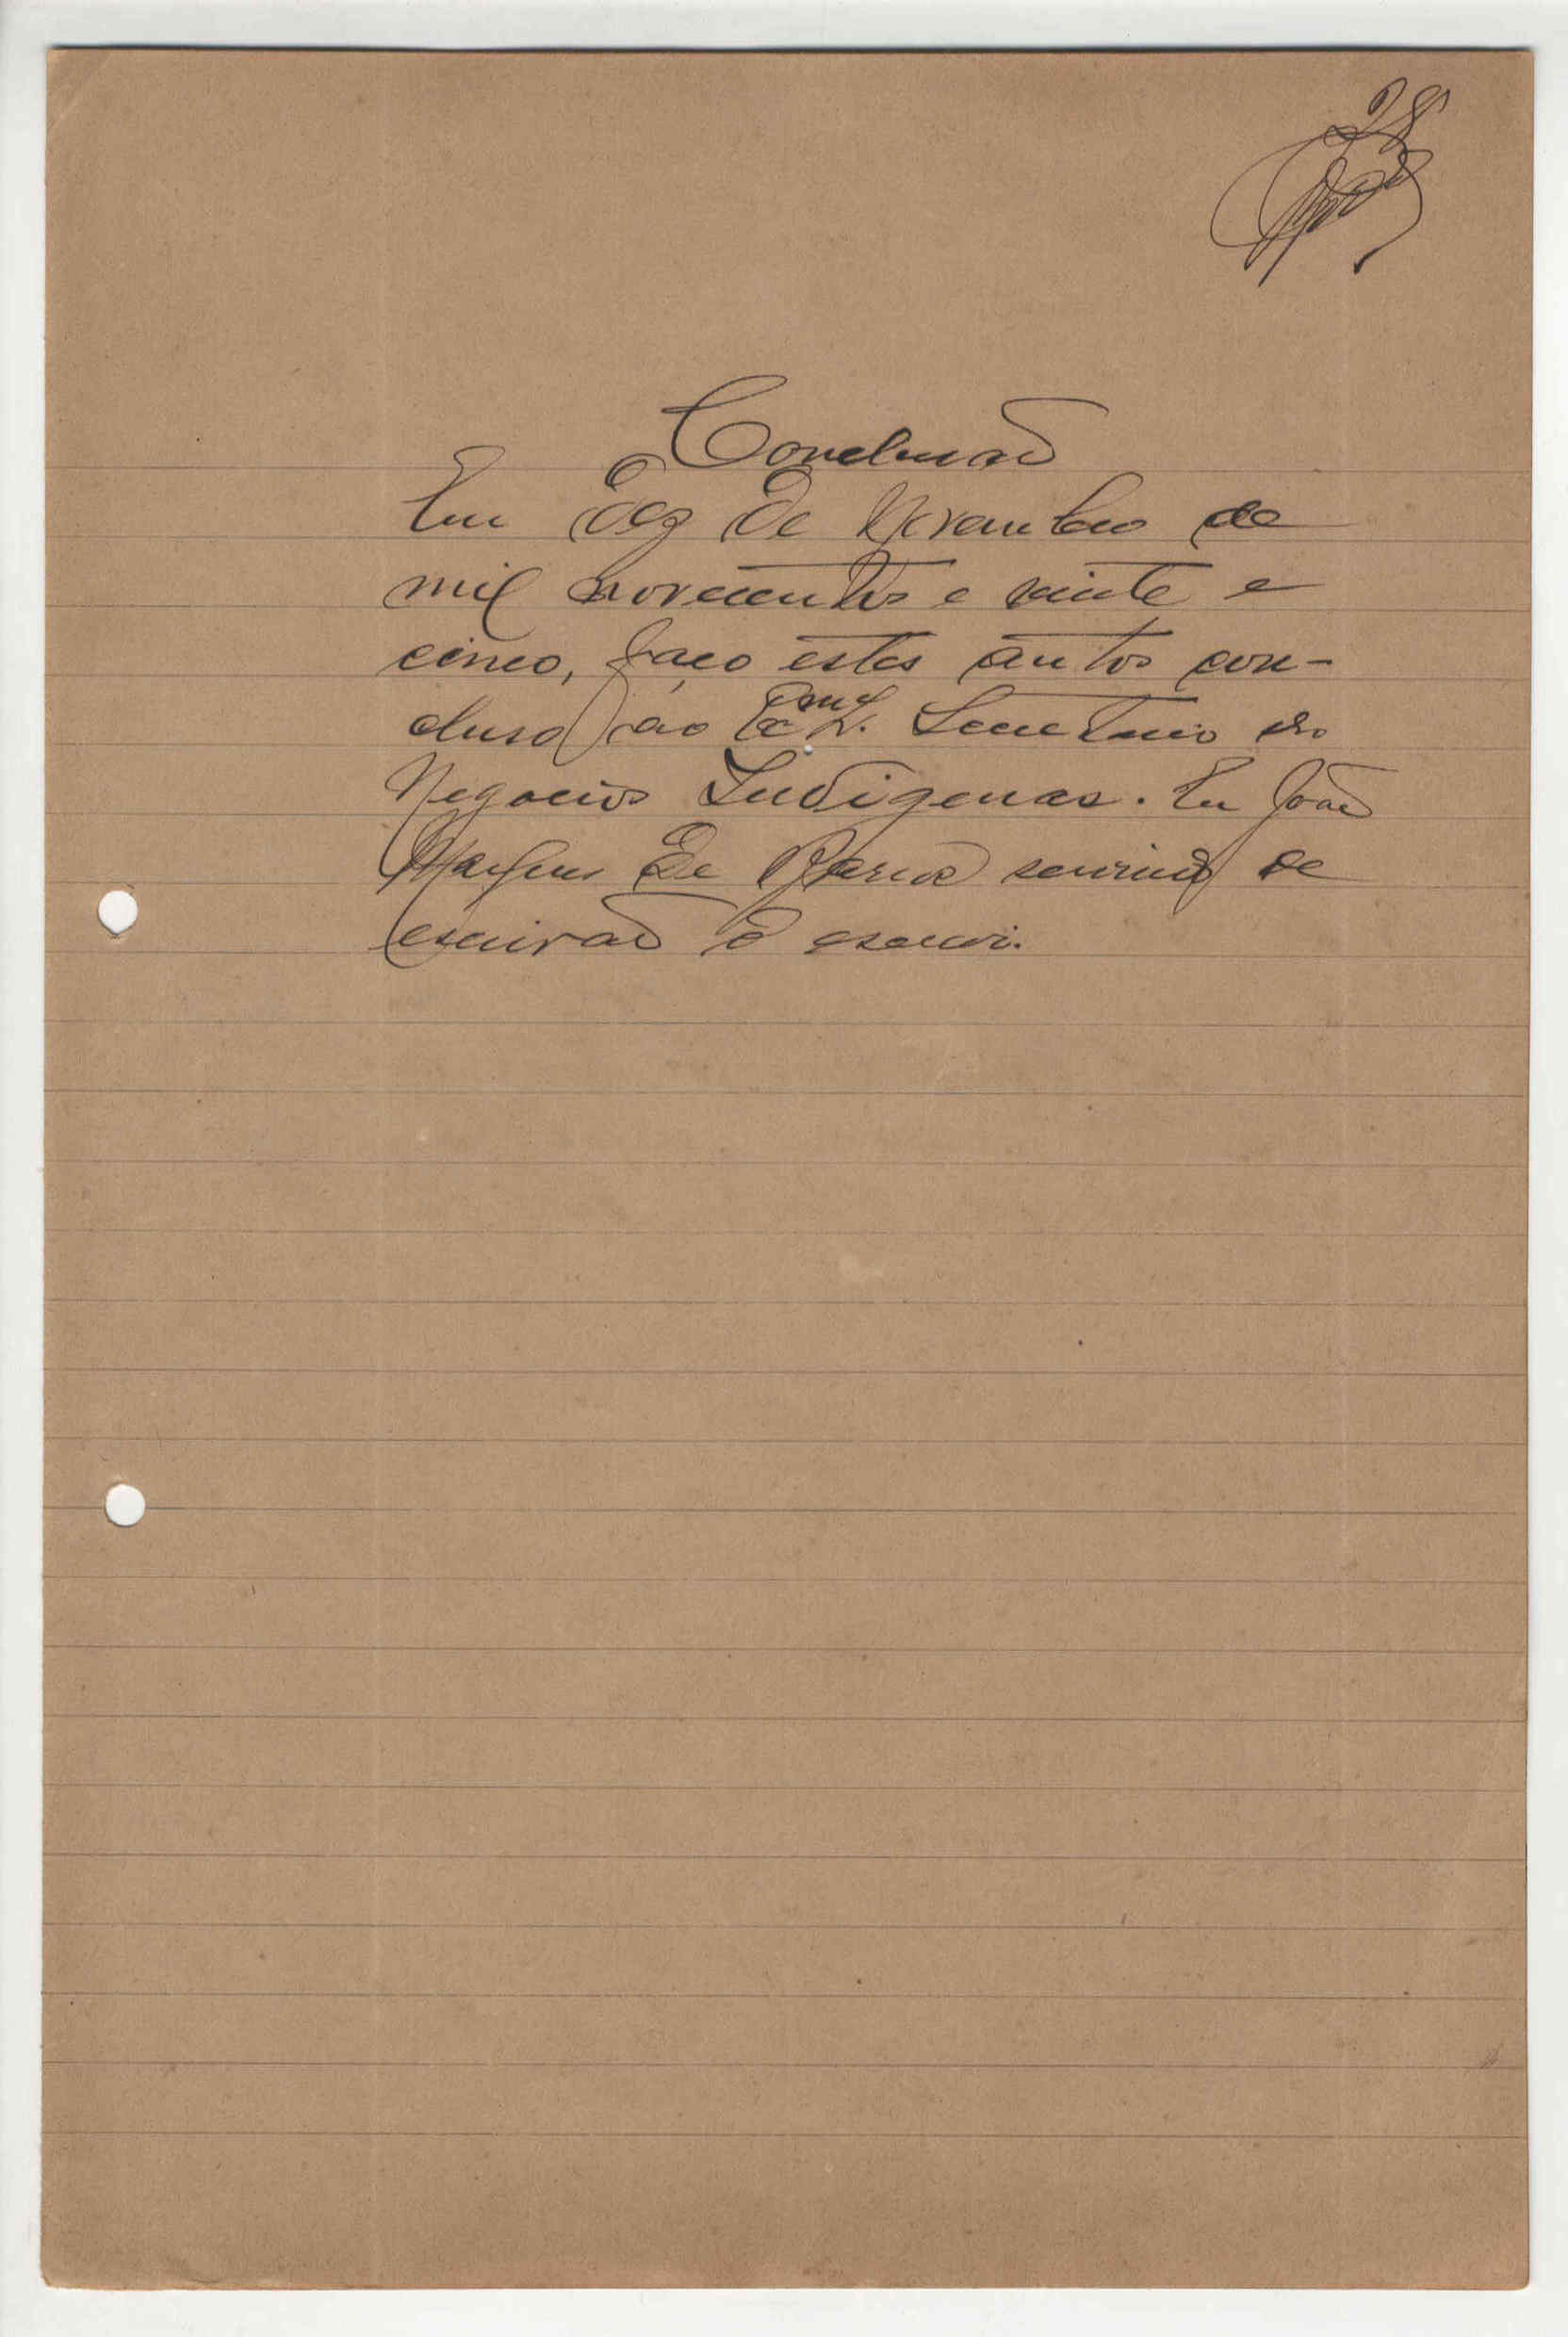 28
Conclusão
Em dez de Novembro de
mil novecentos e vinte e
cinco, faço estes autos con-
cluso ao Exmº. Secretario dos
Negocios Indigenas. Eu João
de servindo de
escrivão o escrevi.